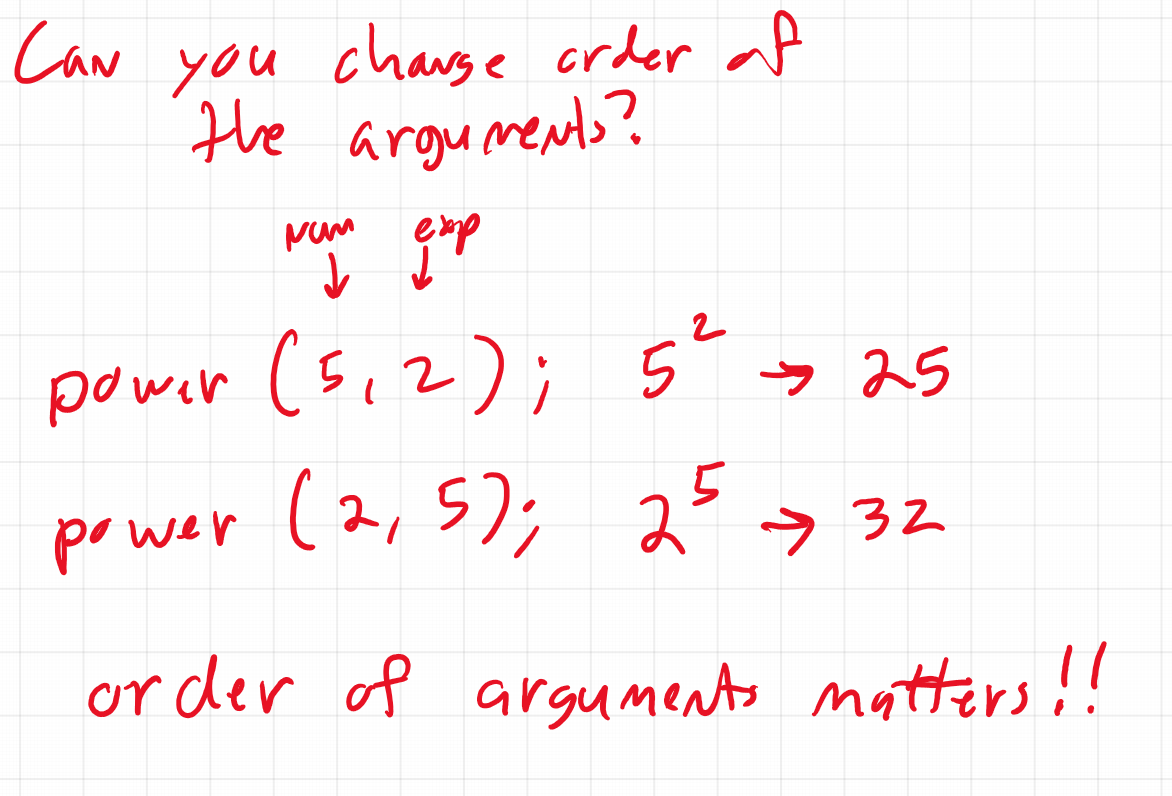 Can you change order of
the arguments?
num exp
↓ ↓
power (5, 2); 5² → 25
power (2, 5); 2⁵ → 32
order of arguments matters!!